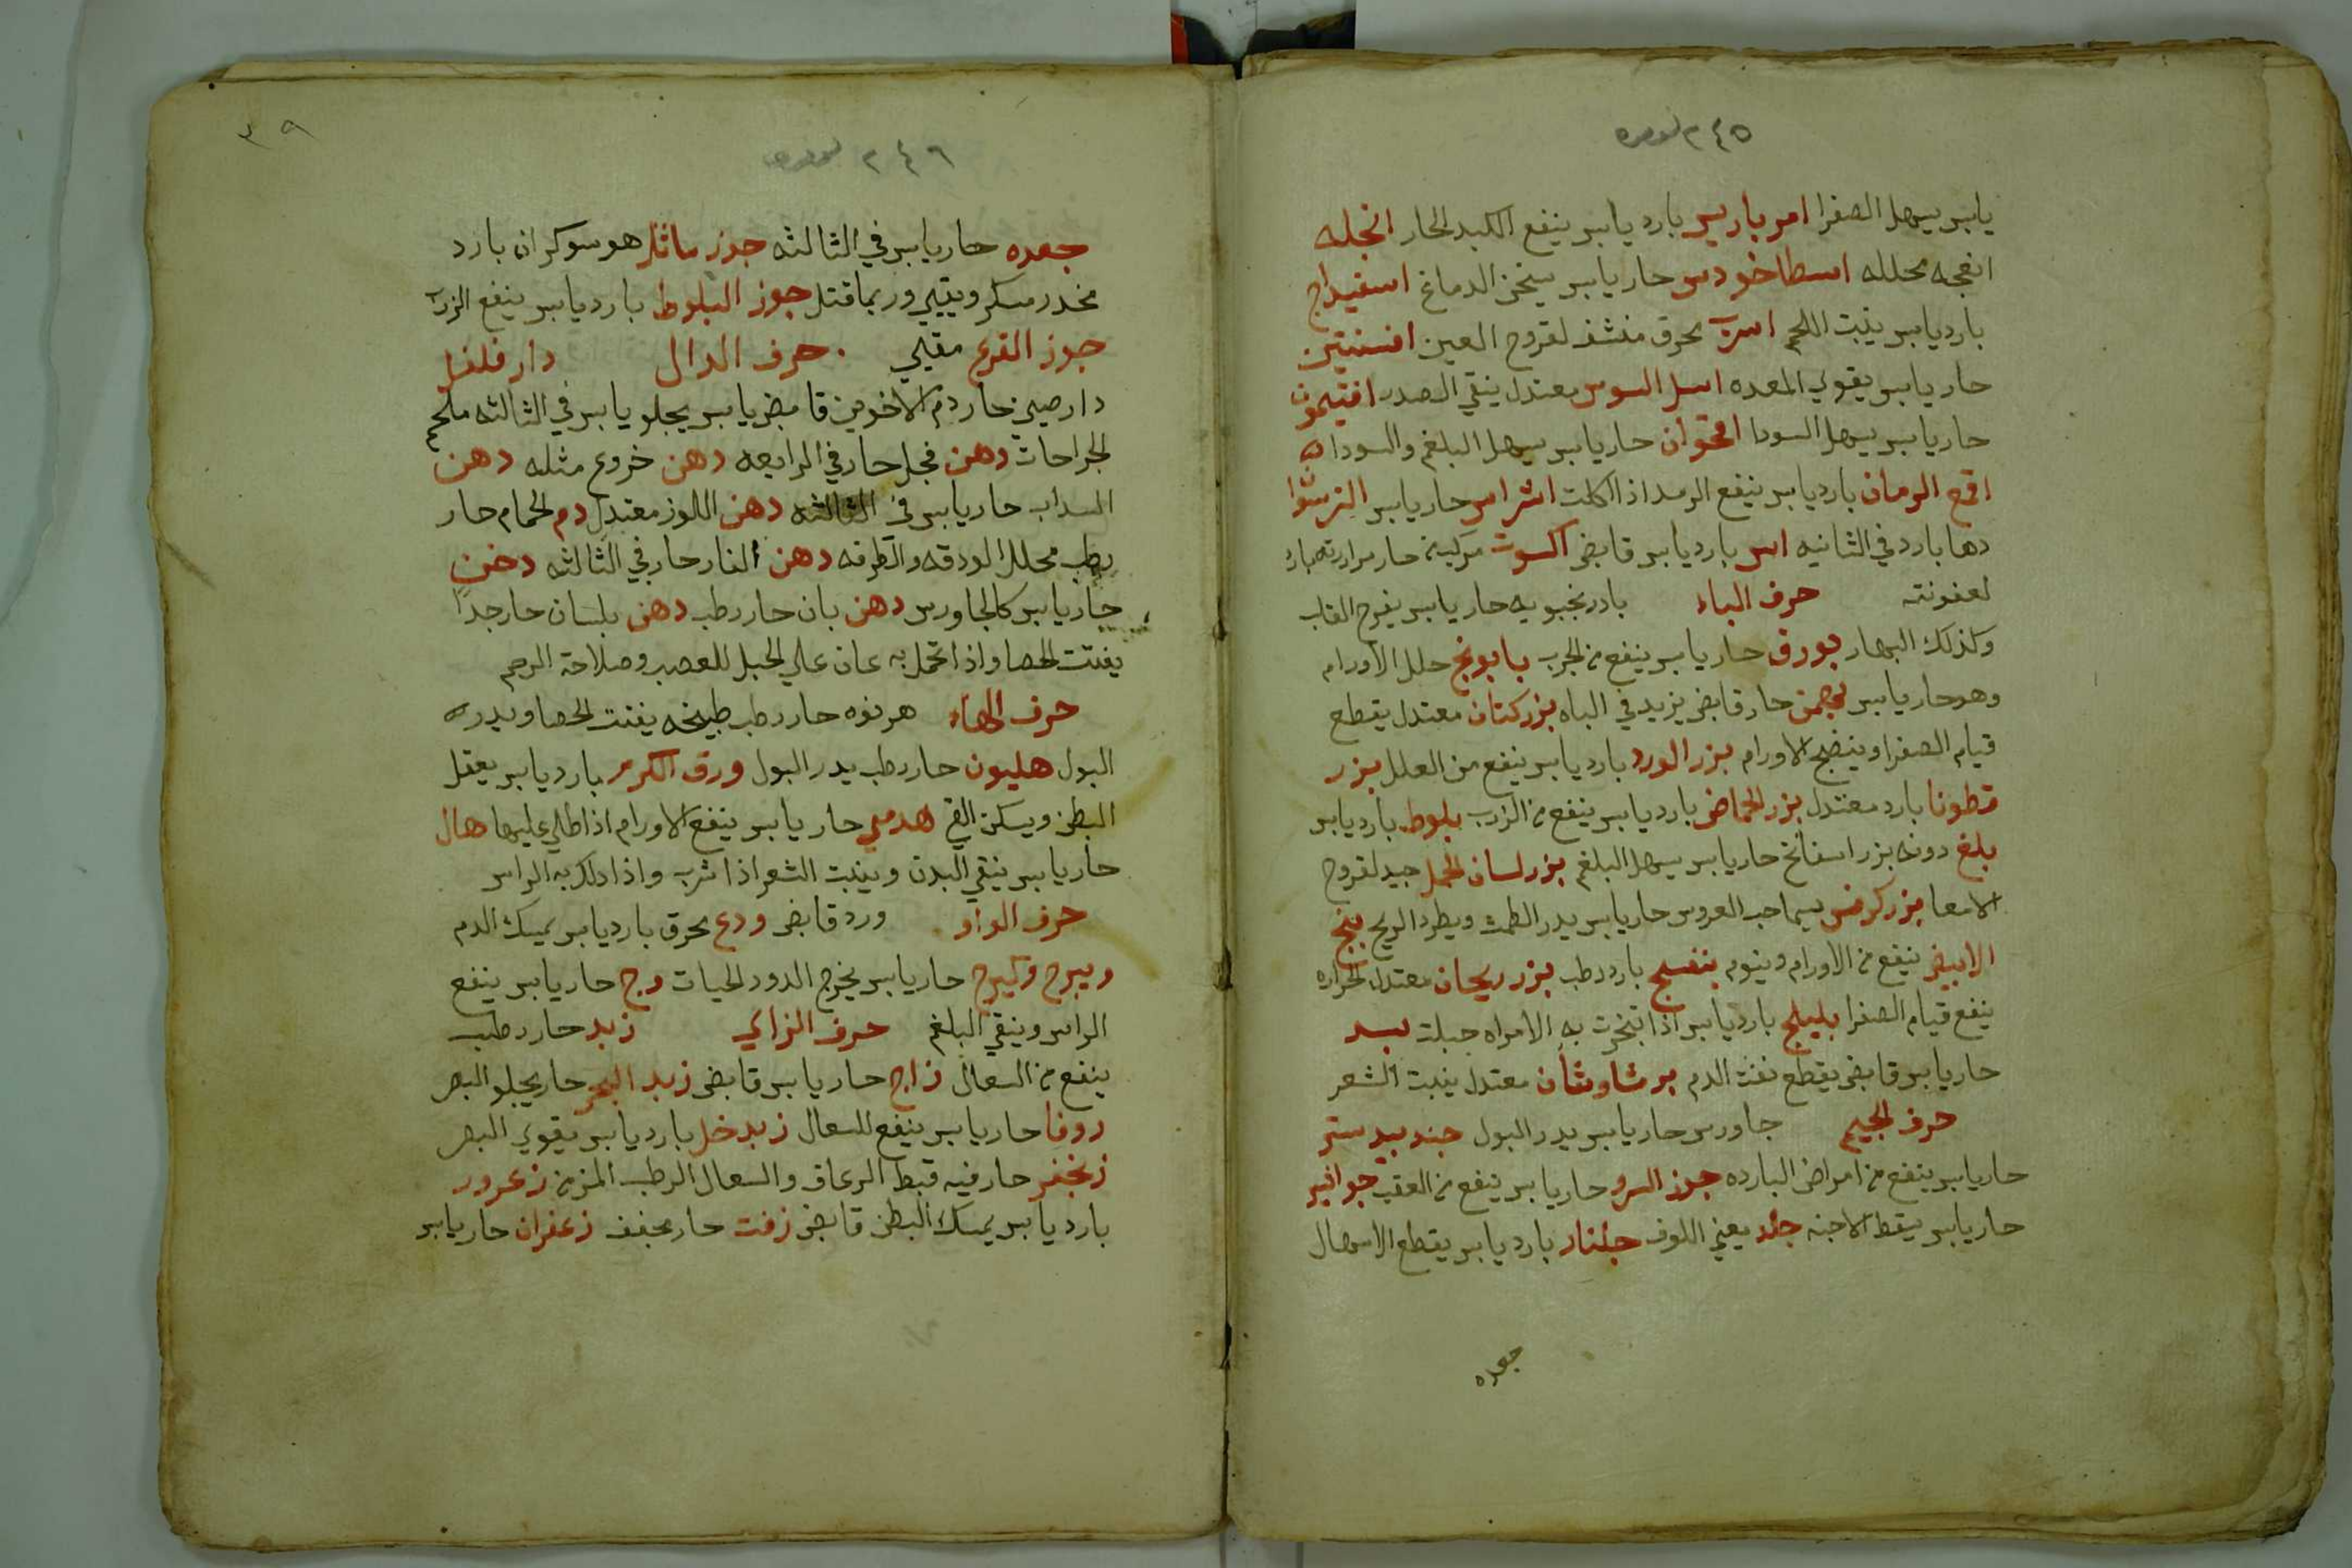 ٢٤٥
يابس يسهل الصفرا امرباريس بارد يابس ينفع الكبد الحار انجله
انفجه محلله اسطاخودس حار يابس يسخن الدماغ اسفيداج
بارد يابس ينبت اللحم اسرب محرق منشف لقروح العين افسنتين
حار يابس يقوي المعده اسل السوس معتدل ينقي الصدر افتيمون
حار يابس يسهل السودا اقحوان حار يابس يسهل البلغم والسودا
اقع الرمان بارد يابس ينفع الرمد اذا اكلت اشراس حار يابس
دها بارد في الثانيه اس بارد يابس قابض اكسوت مركب من حار
لعفونته حرف الباء بادرنجبويه حار يابس يفرح القلب
وكذلك البهار بورق حار يابس ينفع من الجرب بابونج حلل الاورام
وهو حار يابس بهمن حار قابض يزيد في الباه بزر كتان معتدل يقطع
قيام الصفرا وينضج الاورام بزر الورد بارد يابس ينفع من العلل بزر
قطونا بارد معتدل بزر الحماض بارد يابس ينفع من الزرب بلوط بارد يابس
بلغ دونه بزر اسفانخ حار يابس يسهل البلغم بزر لسان الحمل جيد لقروح
الامعا بزر كرفس يسما حب العروس حار يابس يدر الطمث ويطرد الريح بنج
الابيض ينفع من الاورام وينوم بنفسج بارد رطب بزر ريحان معتدل الحراره
ينفع قيام الصفرا بليلج بارد يابس اذا تبخرت به الامراه حبلت بسد
حار يابس قابض يقطع نفث الدم برشاوشان معتدل ينبت الشعر
حرف الجيم جاورس حار يابس يدر البول جندبيدستر
حار يابس ينفع من امراض البارده جوز السرو حار يابس ينفع من العقب جوافير
حار يابس يسقط الاجنه جلد يعني اللوف جلنار بارد يابس يقطع الاسهال
جعده
٣٩
٢٤٦
جعده حار يابس في الثالثه جوز ماثل هو سوكران بارد
مخدر مسكر ويقيي وربما قتل جوز البلوط بارد يابس ينفع الزرب
جوز القرع مقيي حرف الدال دار فلفل
دارصيني حار دم الاخوين قابض يابس يجلو يابس في الثالثه ملحم
الجراحات دهن فجل حار في الرابعه دهن خروع مثله دهن
السداب حار يابس في الثالثه دهن اللوز معتدل دم الحمام حار
رطب محلل الودقه والطرفه دهن الغار حار في الثالثه دخن
حار يابس كالجاورس دهن بان حار رطب دهن بلسان حار جدًا
يفتت الحصا واذا تحمل به عان علي الحبل للعصب وصلاحة الرحم
حرف الهاء هرنوه حار رطب طبيخه يفتت الحصا ويدر
البول هليون حار رطب يدر البول ورق الكرم بارد يابس يعقل
البطن ويسكن القي هدملي حار يابس ينفع الاورام اذا طلي عليها هال
حار يابس ينقي البدن وينبت الشعر اذا شرب واذا دلك به الراس
حرف الواو ورد قابض ودع محرق بارد يابس يمسك الدم
وبيرج وكيرج حار يابس يخرج الدود الحيات وج حار يابس ينفع
الراس وينقي البلغم حرف الزاي زبد حار رطب
ينفع من السعال زاج حار يابس قابض زبد البحر حار يجلو البصر
زوفا حار يابس ينفع للسعال زبد خل بارد يابس يقوي البصر
زنجفر حار فيه قبط الرعاف والسعال الرطب المزمن زعرور
بارد يابس يمسك البطن قابض زفت حار مجفف زعفران حار يابس